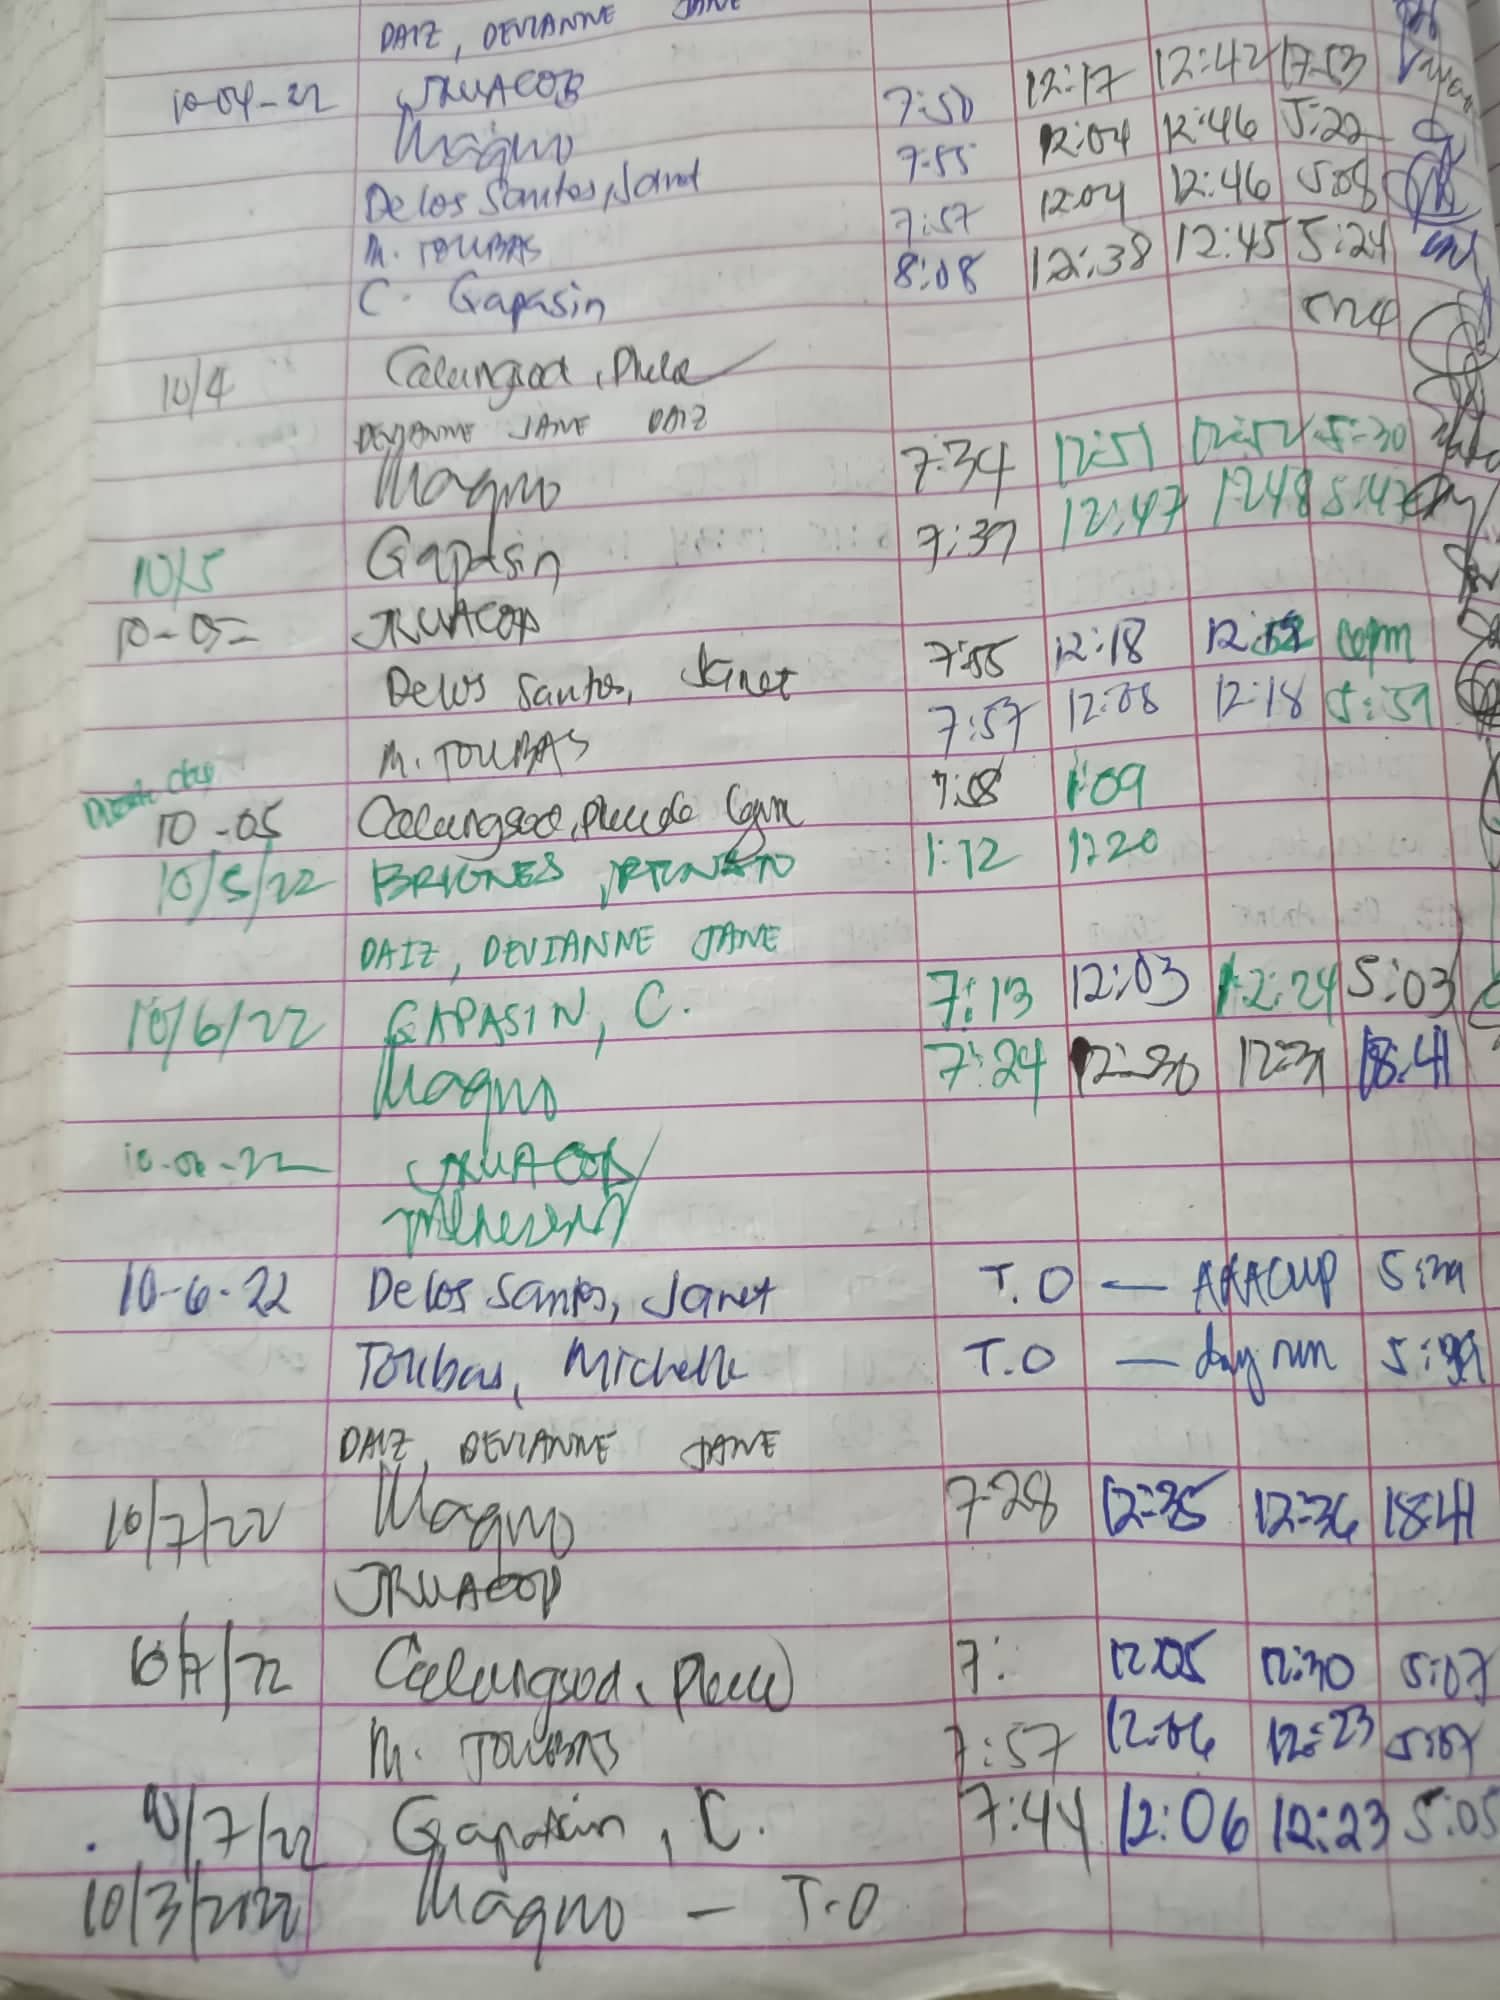 DAIZ, DEVIANNE JANE
10-04-22 JRUACOB 7:50 12:17 12:42 17:53
Magno 7:55 12:04 12:46 5:22
De los Santos, Janet 7:57 12:04 12:46 5:08
M. TOUBAS 8:08 12:38 12:45 5:24
C. Gapasin
10/4 Calungsod,
DEVIANNE JANE DAIZ
Magno 7:34 12:51 12:52 5:30
10/5 Gapasin 7:37 12:47 1248 5:47
10-05- JRUACOB
De los Santos, Janet 7:55 12:18
M. TOUBAS 7:57 12:08 12:18 5:59
10-05 Calungsod, 1:09
10/5/22 BRIONES, 1:12 1:20
DAIZ, DEVIANNE JANE
10/6/22 GAPASIN, C. 7:13 12:03 12:24 5:03
Magno 7:24 12:30 12:31 18:41
10-06-22 JRUACOB
10-6-22 De los Santos, Janet T.O — 5:
Toubas, Michelle T.O — day run 5:39
DAIZ, DEVIANNE JANE
10/7/22 Magno 7:28 12:35 12:36 18:41
JRUACOB
10/7/22 Calungsod, 7: 12:05 12:30 5:07
M. TOUBAS 7:57 12:06 12:23 5:07
10/7/22 Gapasin, C. 7:44 12:06 12:23 5:05
10/3/2022 Magno - T.O